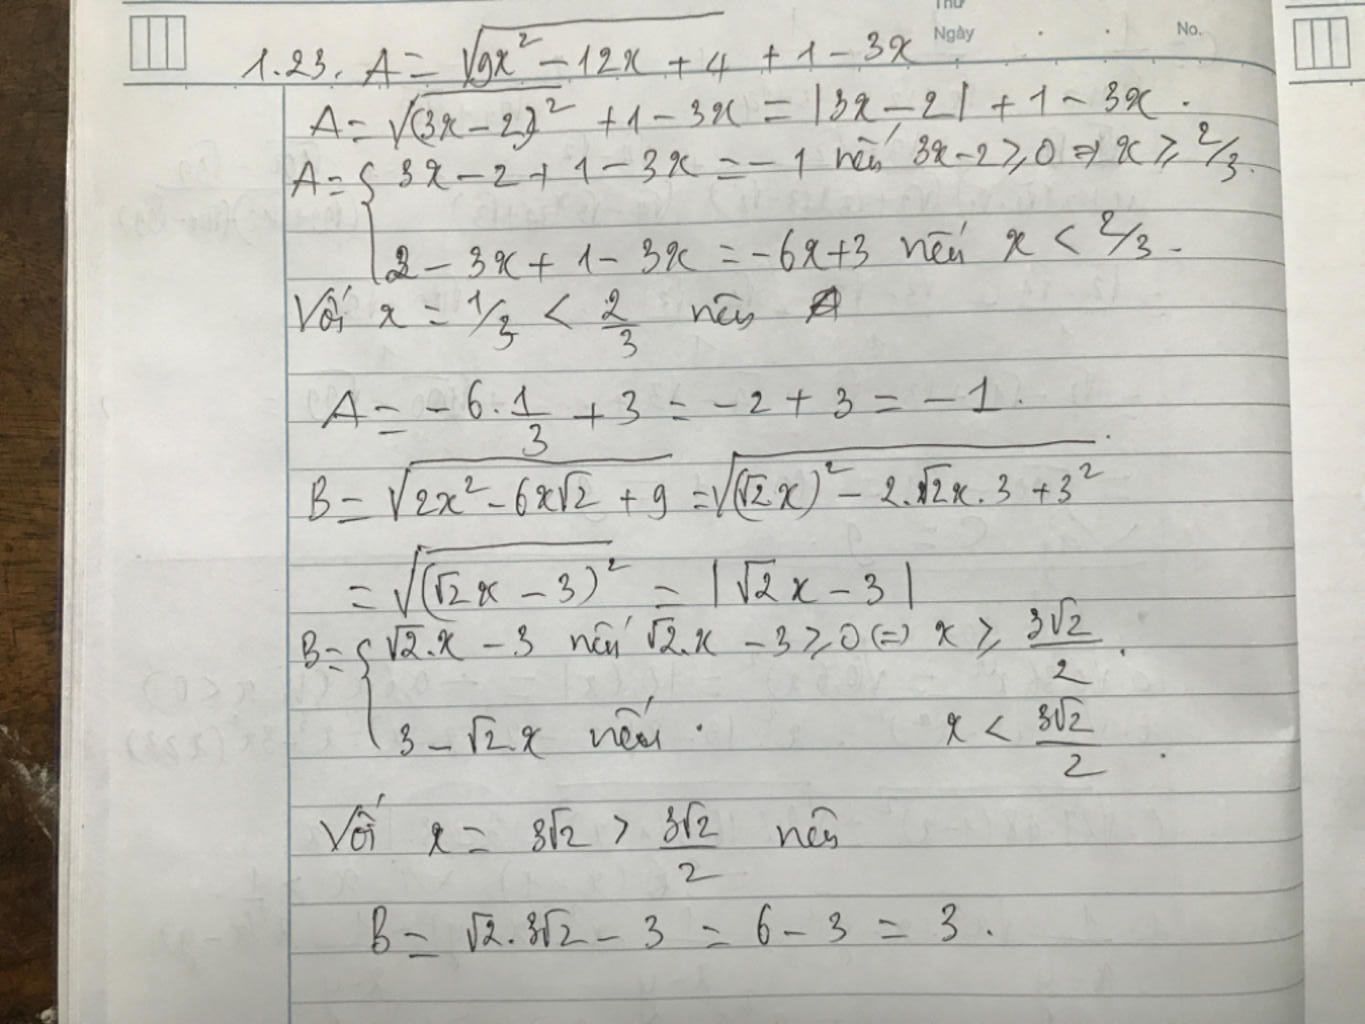 Thứ
Ngày No.
1.23. A = √(9x² - 12x + 4) + 1 - 3x
A = √((3x - 2)²) + 1 - 3x = |3x - 2| + 1 - 3x.
A = { 3x - 2 + 1 - 3x = -1 nếu 3x - 2 ≥ 0 => x ≥ 2/3.
2 - 3x + 1 - 3x = -6x + 3 nếu x < 2/3.
Với x = 1/3 < 2/3 nên
A = -6.1/3 + 3 = -2 + 3 = -1.
B = √(2x² - 6x√2 + 9) = √((√2x)² - 2.√2x.3 + 3²)
= √((√2x - 3)²) = |√2x - 3|
B = { √2.x - 3 nếu √2.x - 3 ≥ 0 (=) x ≥ 3√2/2.
3 - √2.x nếu x < 3√2/2.
Với x = 3√2 > 3√2/2 nên
B = √2.3√2 - 3 = 6 - 3 = 3.